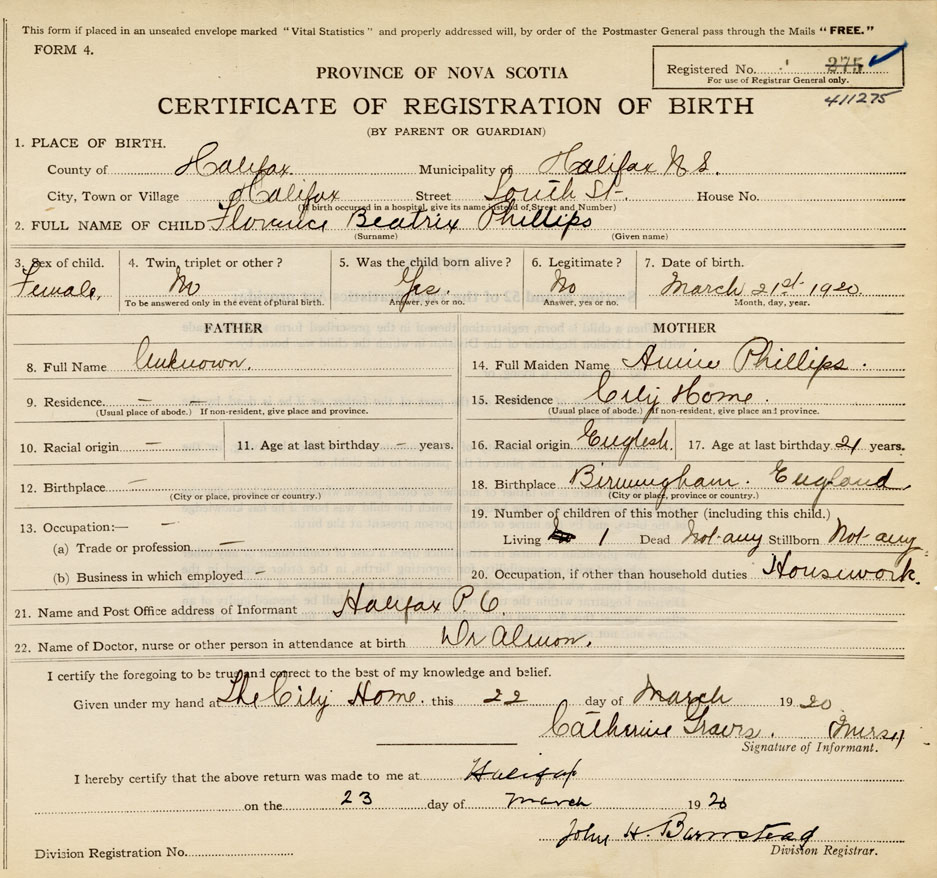 This form if placed in an unsealed envelope marked "Vital Statistics" and properly addressed will, by order of the Postmaster General pass through the Mails "FREE."
FORM 4.
Registered No. 275
For use of Registrar General only.
411275
PROVINCE OF NOVA SCOTIA
CERTIFICATE OF REGISTRATION OF BIRTH
(BY PARENT OR GUARDIAN)
1. PLACE OF BIRTH.
County of Halifax. Municipality of Halifax N.S.
City, Town or Village Halifax Street South St. House No.
(If birth occurred in a hospital, give its name instead of Street and Number)
2. FULL NAME OF CHILD Florence Beatrix Phillips
(Surname) (Given name)
3. Sex of child. 4. Twin, triplet or other? 5. Was the child born alive? 6. Legitimate? 7. Date of birth.
Female, No Yes. No March 21st 1920.
To be answered only in the event of plural birth. Answer, yes or no. Answer, yes or no. Month, day, year.
FATHER
8. Full Name Unknown.
9. Residence. — —
(Usual place of abode.) If non-resident, give place and province.
10. Racial origin — 11. Age at last birthday — years.
12. Birthplace —
(City or place, province or country.)
13. Occupation:— —
(a) Trade or profession —
(b) Business in which employed —
MOTHER
14. Full Maiden Name Annie Phillips.
15. Residence City Home.
(Usual place of abode.) If non-resident, give place and province.
16. Racial origin English. 17. Age at last birthday 21 years.
18. Birthplace Birmingham. England
(City or place, province or country.)
19. Number of children of this mother (including this child.)
Living 1 Dead Not any Stillborn Not any
20. Occupation, if other than household duties Housework.
21. Name and Post Office address of Informant Halifax P.O.
22. Name of Doctor, nurse or other person in attendance at birth Dr Almon.
I certify the foregoing to be true and correct to the best of my knowledge and belief.
Given under my hand at The City Home. this 22 day of March 1920
Catherine Travis. (Nurse)
Signature of Informant.
I hereby certify that the above return was made to me at Halifax
on the 23 day of March 1920
John H. Barnstead
Division Registrar.
Division Registration No.